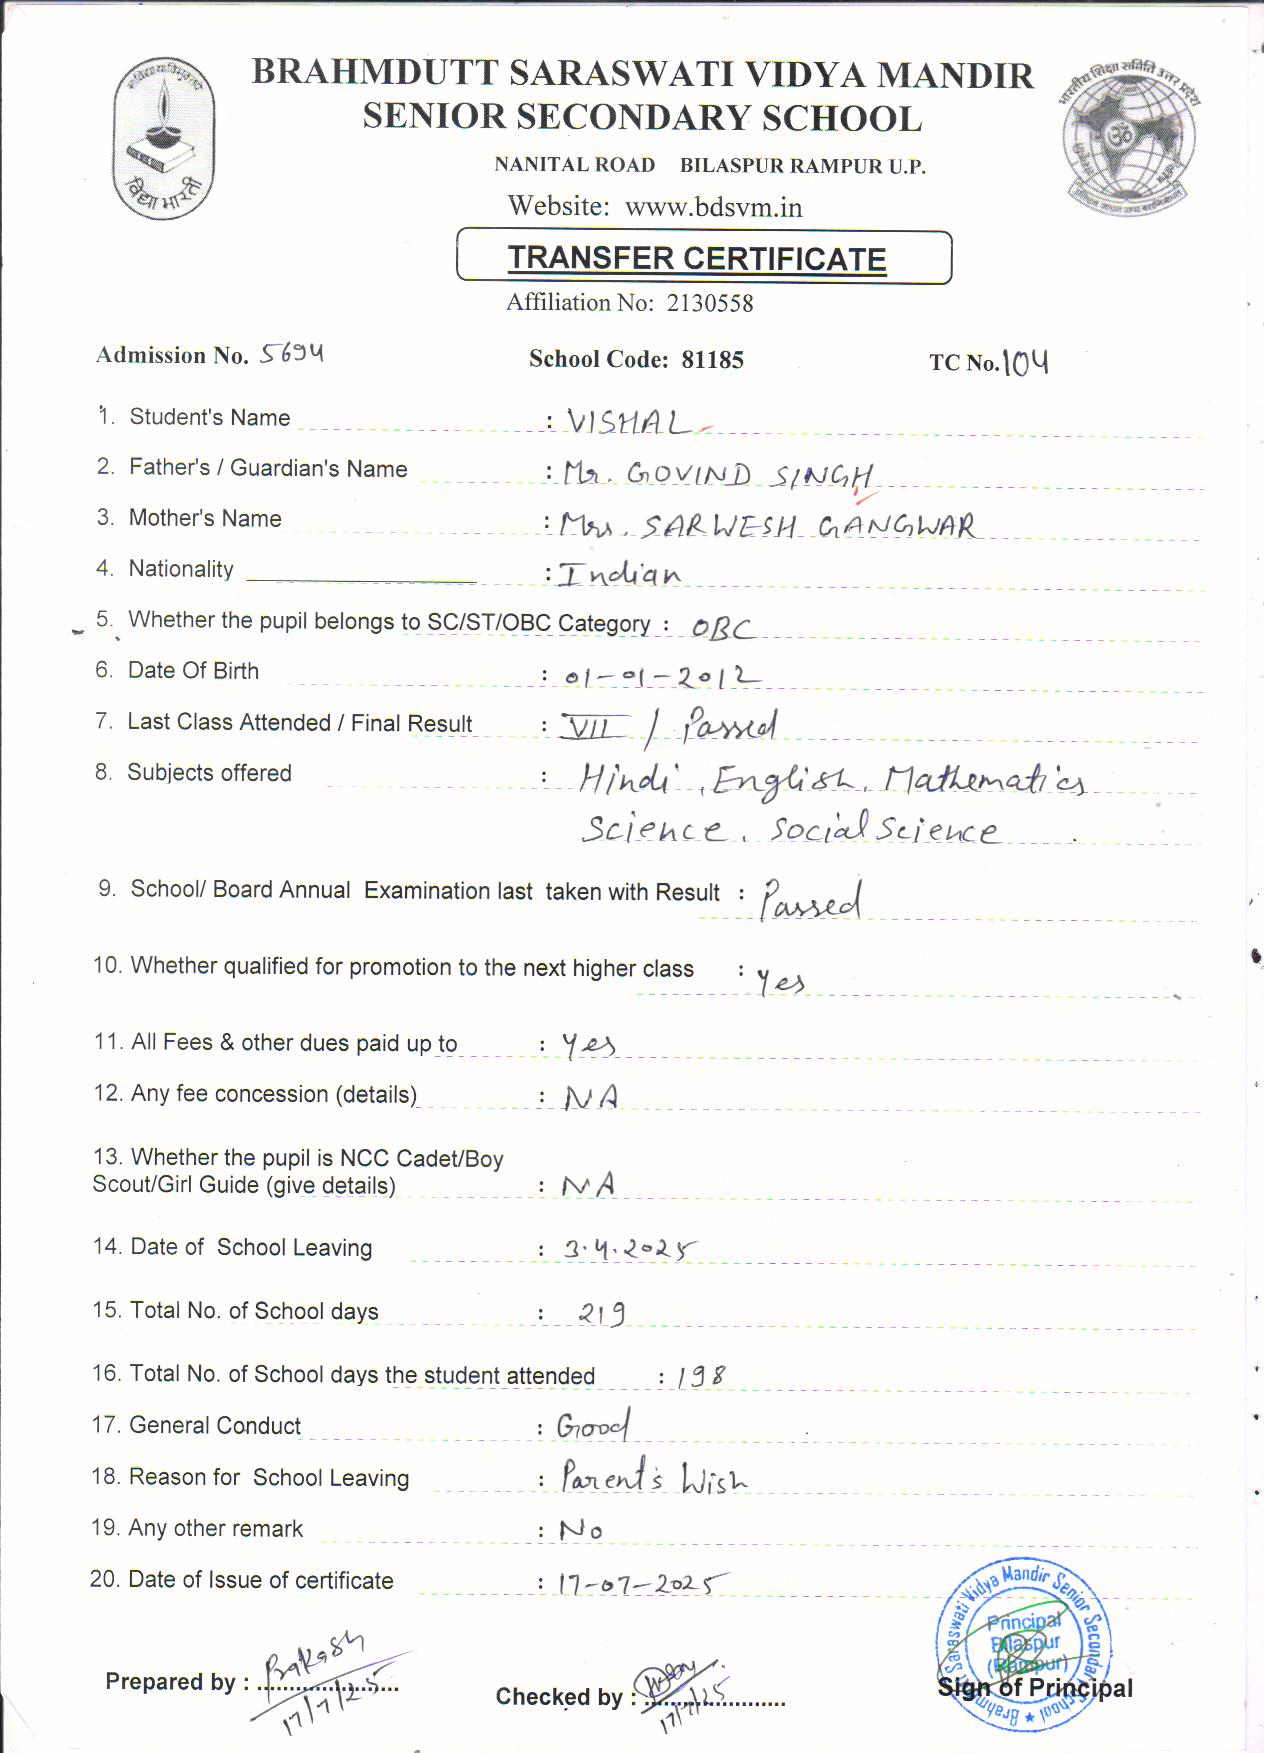 BRAHMDUTT SARASWATI VIDYA MANDIR
SENIOR SECONDARY SCHOOL
NANITAL ROAD BILASPUR RAMPUR U.P.
Website: www.bdsvm.in
विद्या भारती
भारतीय शिक्षा समिति उत्तर प्रदेश
TRANSFER CERTIFICATE
Affiliation No: 2130558
Admission No. 5694 School Code: 81185 TC No. 104
1. Student's Name : VISHAL
2. Father's / Guardian's Name : Mr. GOVIND SINGH
3. Mother's Name : Mrs. SARWESH GANGWAR
4. Nationality : Indian
5. Whether the pupil belongs to SC/ST/OBC Category : OBC
6. Date Of Birth : 01-01-2012
7. Last Class Attended / Final Result : VII / Passed
8. Subjects offered : Hindi, English, Mathematics
Science, Social Science
9. School/ Board Annual Examination last taken with Result : Passed
10. Whether qualified for promotion to the next higher class : Yes
11. All Fees & other dues paid up to : Yes
12. Any fee concession (details) : NA
13. Whether the pupil is NCC Cadet/Boy
Scout/Girl Guide (give details) : NA
14. Date of School Leaving : 3.4.2025
15. Total No. of School days : 219
16. Total No. of School days the student attended : 198
17. General Conduct : Good
18. Reason for School Leaving : Parent's Wish
19. Any other remark : No
20. Date of Issue of certificate : 17-07-2025
Brahmdutt Saraswati Vidya Mandir Senior Secondary School
Principal
Bilaspur
(Rampur)
Prepared by : Prakash
17/7/25
Checked by :
17/7/25
Sign of Principal